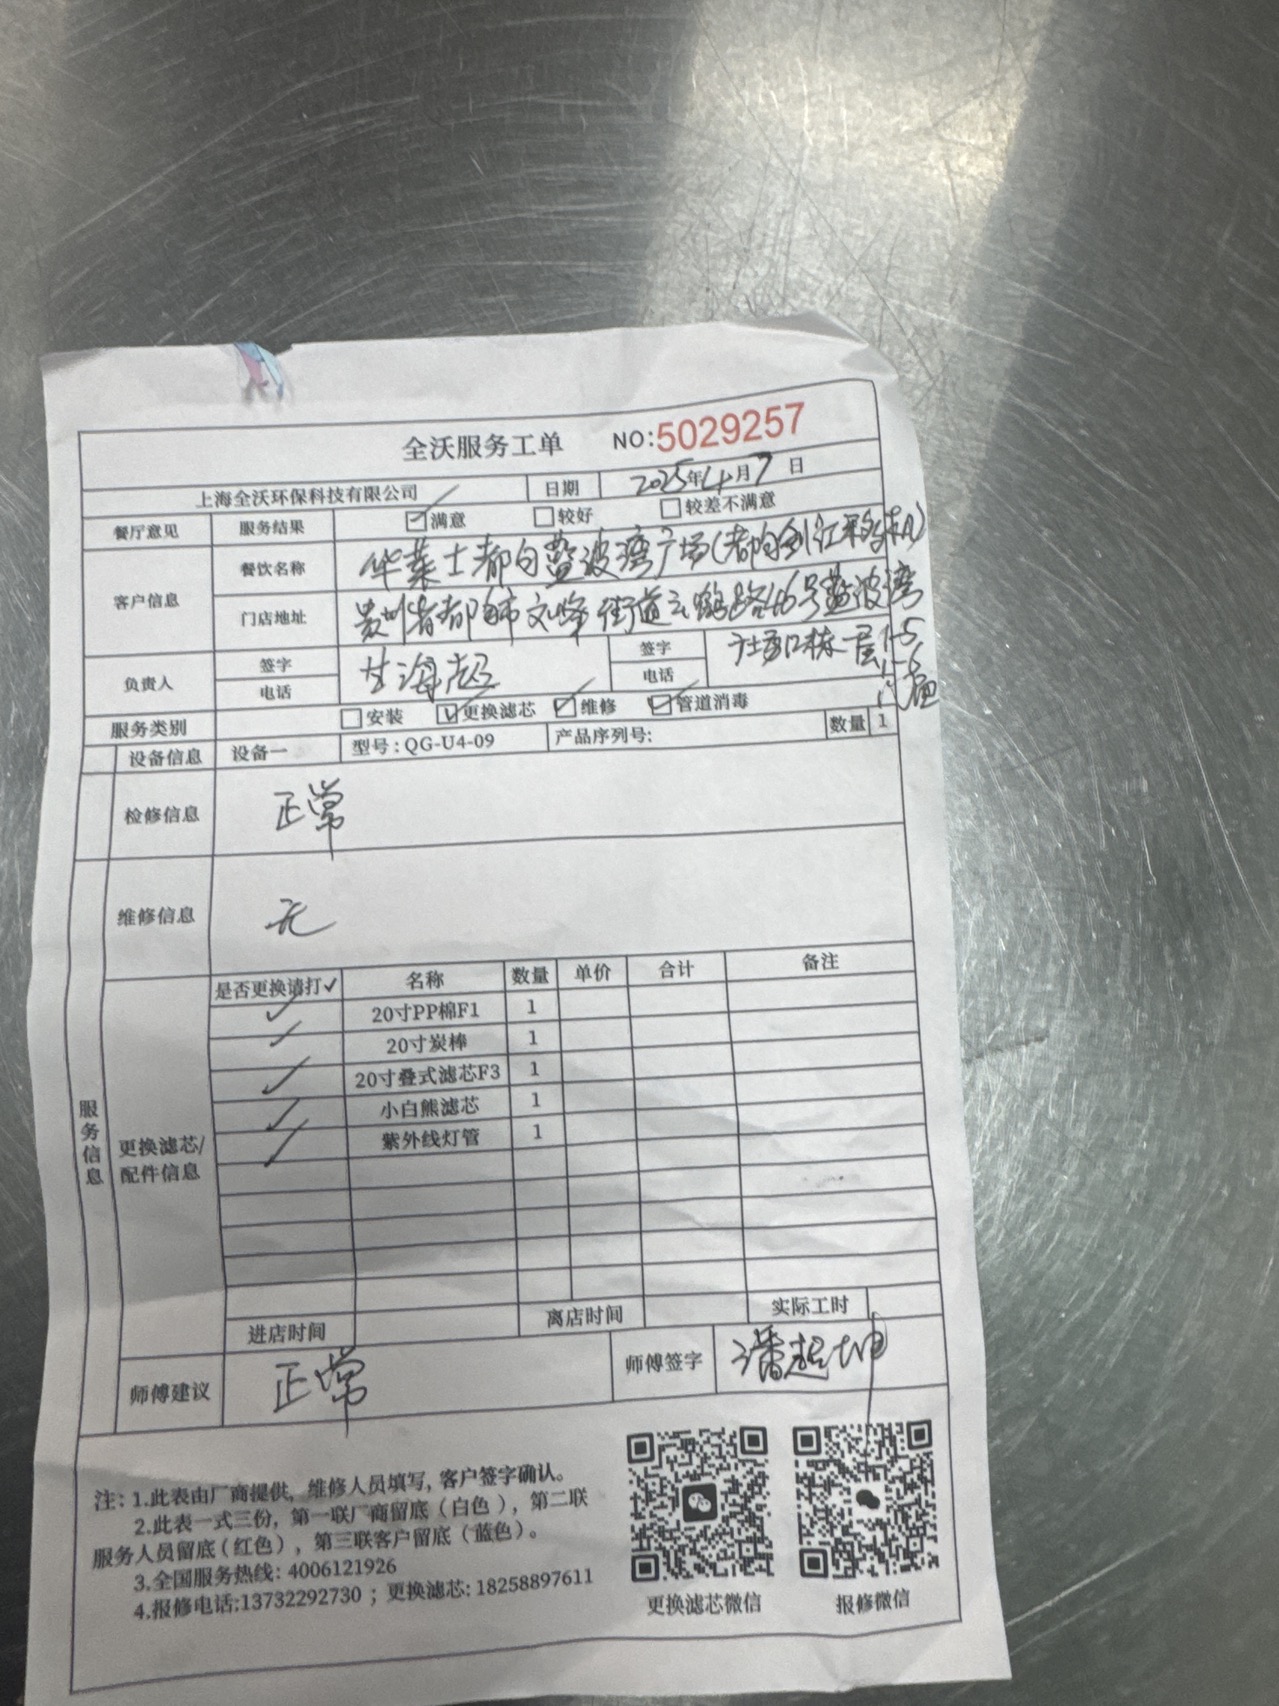 全沃服务工单 NO:5029257
上海全沃环保科技有限公司 日期 2025年4月7日
餐厅意见 服务结果 满意 较好 较差不满意
客户信息 餐饮名称 华莱士都匀蓝波湾广场(都匀剑江
门店地址 贵州省都匀市文峰街道云鹤路46号蓝波湾
负责人 签字 甘海超 签字
一层1-5
电话 电话
1-6
服务类别 安装 更换滤芯 维修 管道消毒
设备信息 设备一 型号:QG-U4-09 产品序列号: 数量 1
检修信息 正常
维修信息 无
服务信息
更换滤芯/配件信息
是否更换请打✓ 名称 数量 单价 合计 备注
✓ 20寸PP棉F1 1
✓ 20寸炭棒 1
✓ 20寸叠式滤芯F3 1
✓ 小白熊滤芯 1
✓ 紫外线灯管 1
进店时间 离店时间 实际工时
师傅建议 正常 师傅签字 潘起坤
注:1.此表由厂商提供,维修人员填写,客户签字确认。
2.此表一式三份,第一联厂商留底(白色),第二联
服务人员留底(红色),第三联客户留底(蓝色)。
3.全国服务热线:4006121926
4.报修电话:13732292730;更换滤芯:18258897611
更换滤芯微信 报修微信